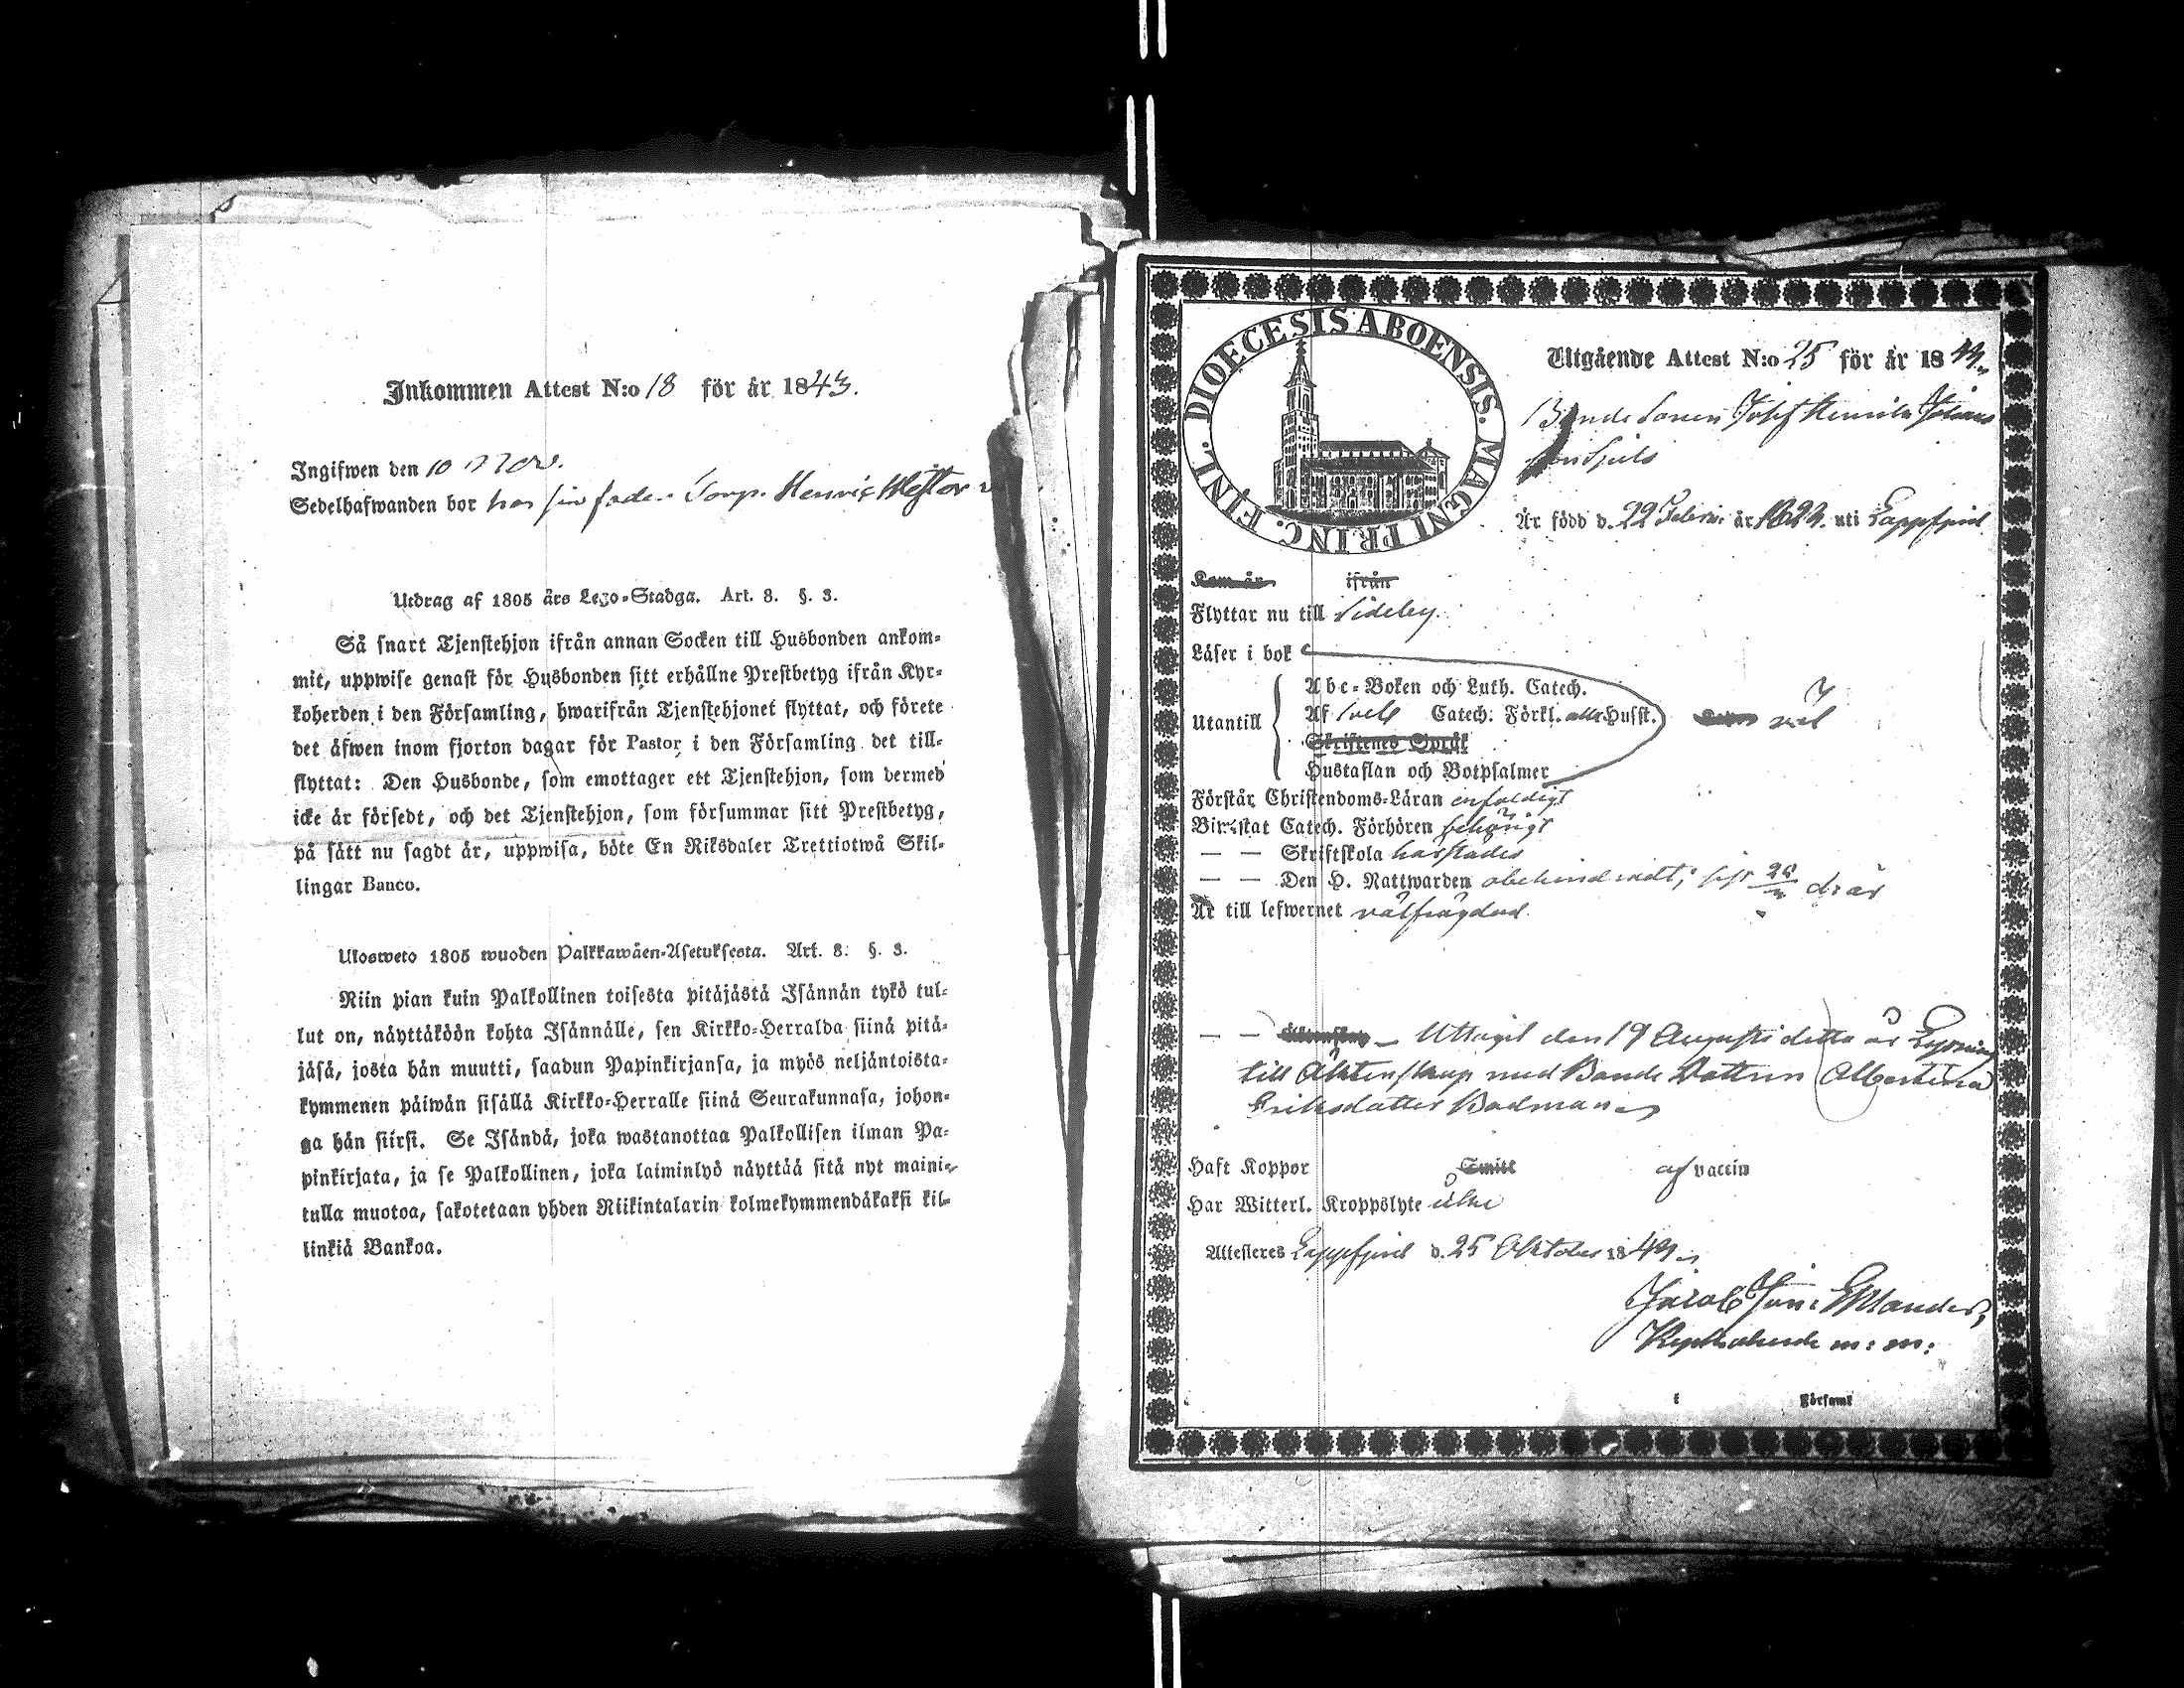 Inkommen Attest N:o 18 för år 1843.
Ingifwen den 10 Nov.
Sedelhafwanden bor hos sin fader Torp. Henric
Utdrag af 1805 års Lego-Stadga. Art. 8. §. 3.
Så snart Tjenstehjon ifrån annan Socken till Husbonden ankom-
mit, uppwise genast för Husbonden sitt erhållne Prestbetyg ifrån Kyr-
koherden i den Församling, hwarifrån Tjenstehjonet flyttat, och förete
det äfwen inom fjorton dagar för Pastor i den Församling det till-
flyttat: Den Husbonde, som emottager ett Tjenstehjon, som dermed
icke är försedt, och det Tjenstehjon, som försummar sitt Prestbetyg,
på sätt nu sagdt är, uppwisa, böte En Riksdaler Trettiotwå Skil-
lingar Banco.
Ulosweto 1805 wuoden Palkkawäen-Asetuksesta. Art. 8. §. 3.
Niin pian kuin Palkollinen toisesta pitäjästä Isännän tykö tul-
lut on, näyttäköön kohta Isännälle, sen Kirkko-Herralda siinä pitä-
jäsä, josta hän muutti, saadun Papinkirjansa, ja myös neljäntoista-
kymmenen päiwän sisällä Kirkko-Herralle siinä Seurakunnasa, johon-
ga hän siirsi. Se Isändä, joka wastanottaa Palkollisen ilman Pa-
pinkirjata, ja se Palkollinen, joka laiminlyö näyttää sitä nyt maini-
tulla muotoa, sakotetaan yhden Riikintalarin kolmekymmendäkaksi kil-
linkiä Bankoa.
DIOECESIS ABOENSIS. MAGNI PRINC. FINL.
Utgående Attest N:o 25 för år 1843.
Bonde Sonen Josef Henrik Johans
son
Är född d. 22 Februr. år uti Lappfjerd
Kom år ifrån
Flyttar nu till Sideby.
Läser i bok
Utantill
Abc-Boken och Luth. Catech.
Af Catech. Förkl. alla Husst. väl
Skriftenes Språk
Hustaflan och Botpsalmer
Förstår Christendoms-Läran enfaldigt
Biwistat Catech. Förhören behörigt
— — Skriftskola härstädes
— — Den H. Nattwarden obehindradt; d: år
Är till lefwernet välfrägdad.
— — Uttagit den 19 Augusti detta år Lysning
till Äktenskap med Bonde Dottren Albertina
Eriksdotter Bodman
Haft Koppor Smitt af vaccin
Har Witterl. Kroppslyte icke
Attesteras Lappfjerd d. 25 Oktober 1843.
Jacob
m: m:
Församl